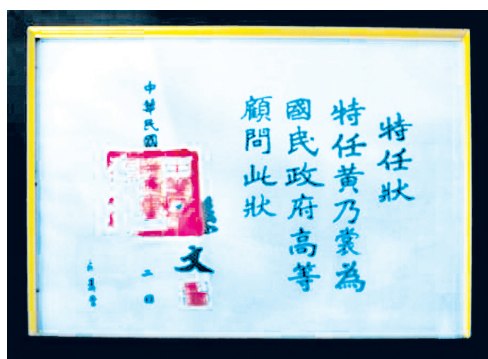 特任狀
特任黃乃裳為
國民政府高等
顧問此狀
文
中華民國
二日